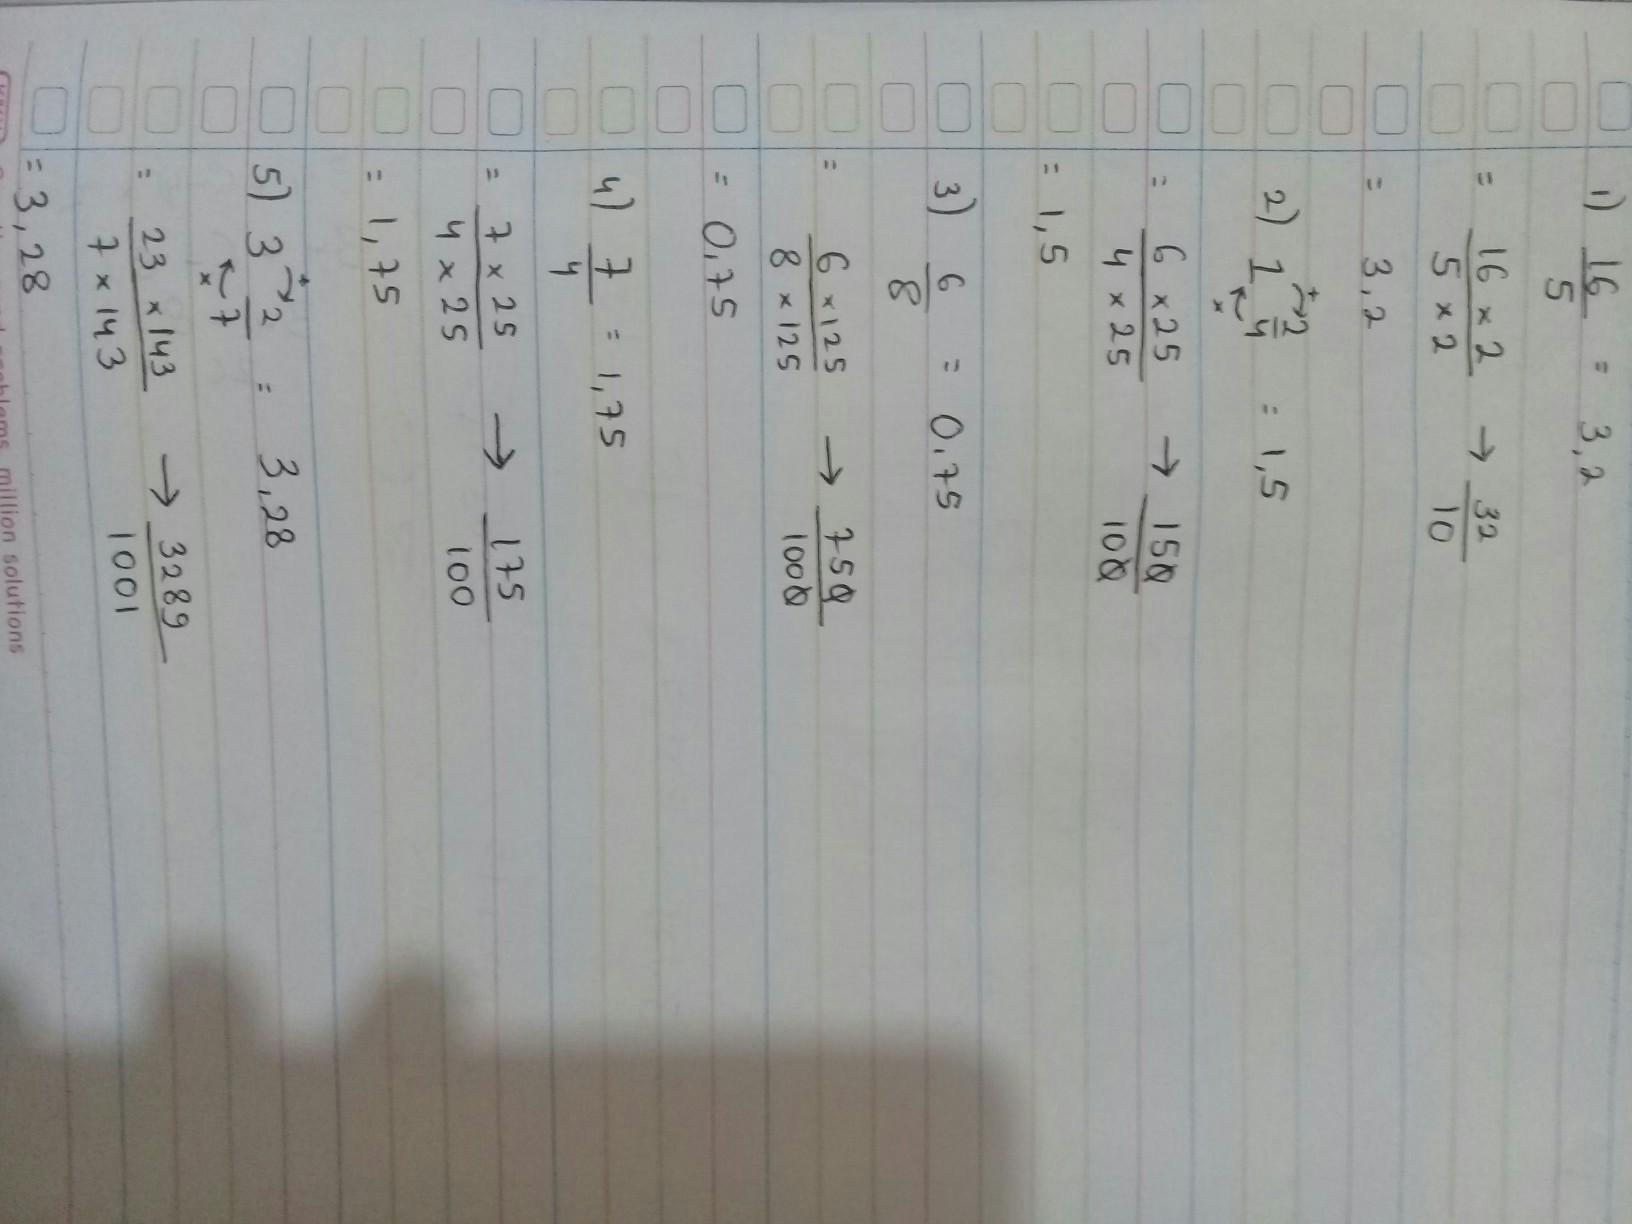 1) 16/5 = 3,2
= 16 × 2 / 5 × 2 → 32/10
= 3,2
2) 1 2/4 = 1,5
+
×
= 6 × 25 / 4 × 25 → 150/100
= 1,5
3) 6/8 = 0,75
= 6 × 125 / 8 × 125 → 750/1000
= 0,75
4) 7/4 = 1,75
= 7 × 25 / 4 × 25 → 175/100
= 1,75
5) 3 2/7 = 3,28
+
×
= 23 × 143 / 7 × 143 → 3289/1001
= 3,28
problems, million solutions